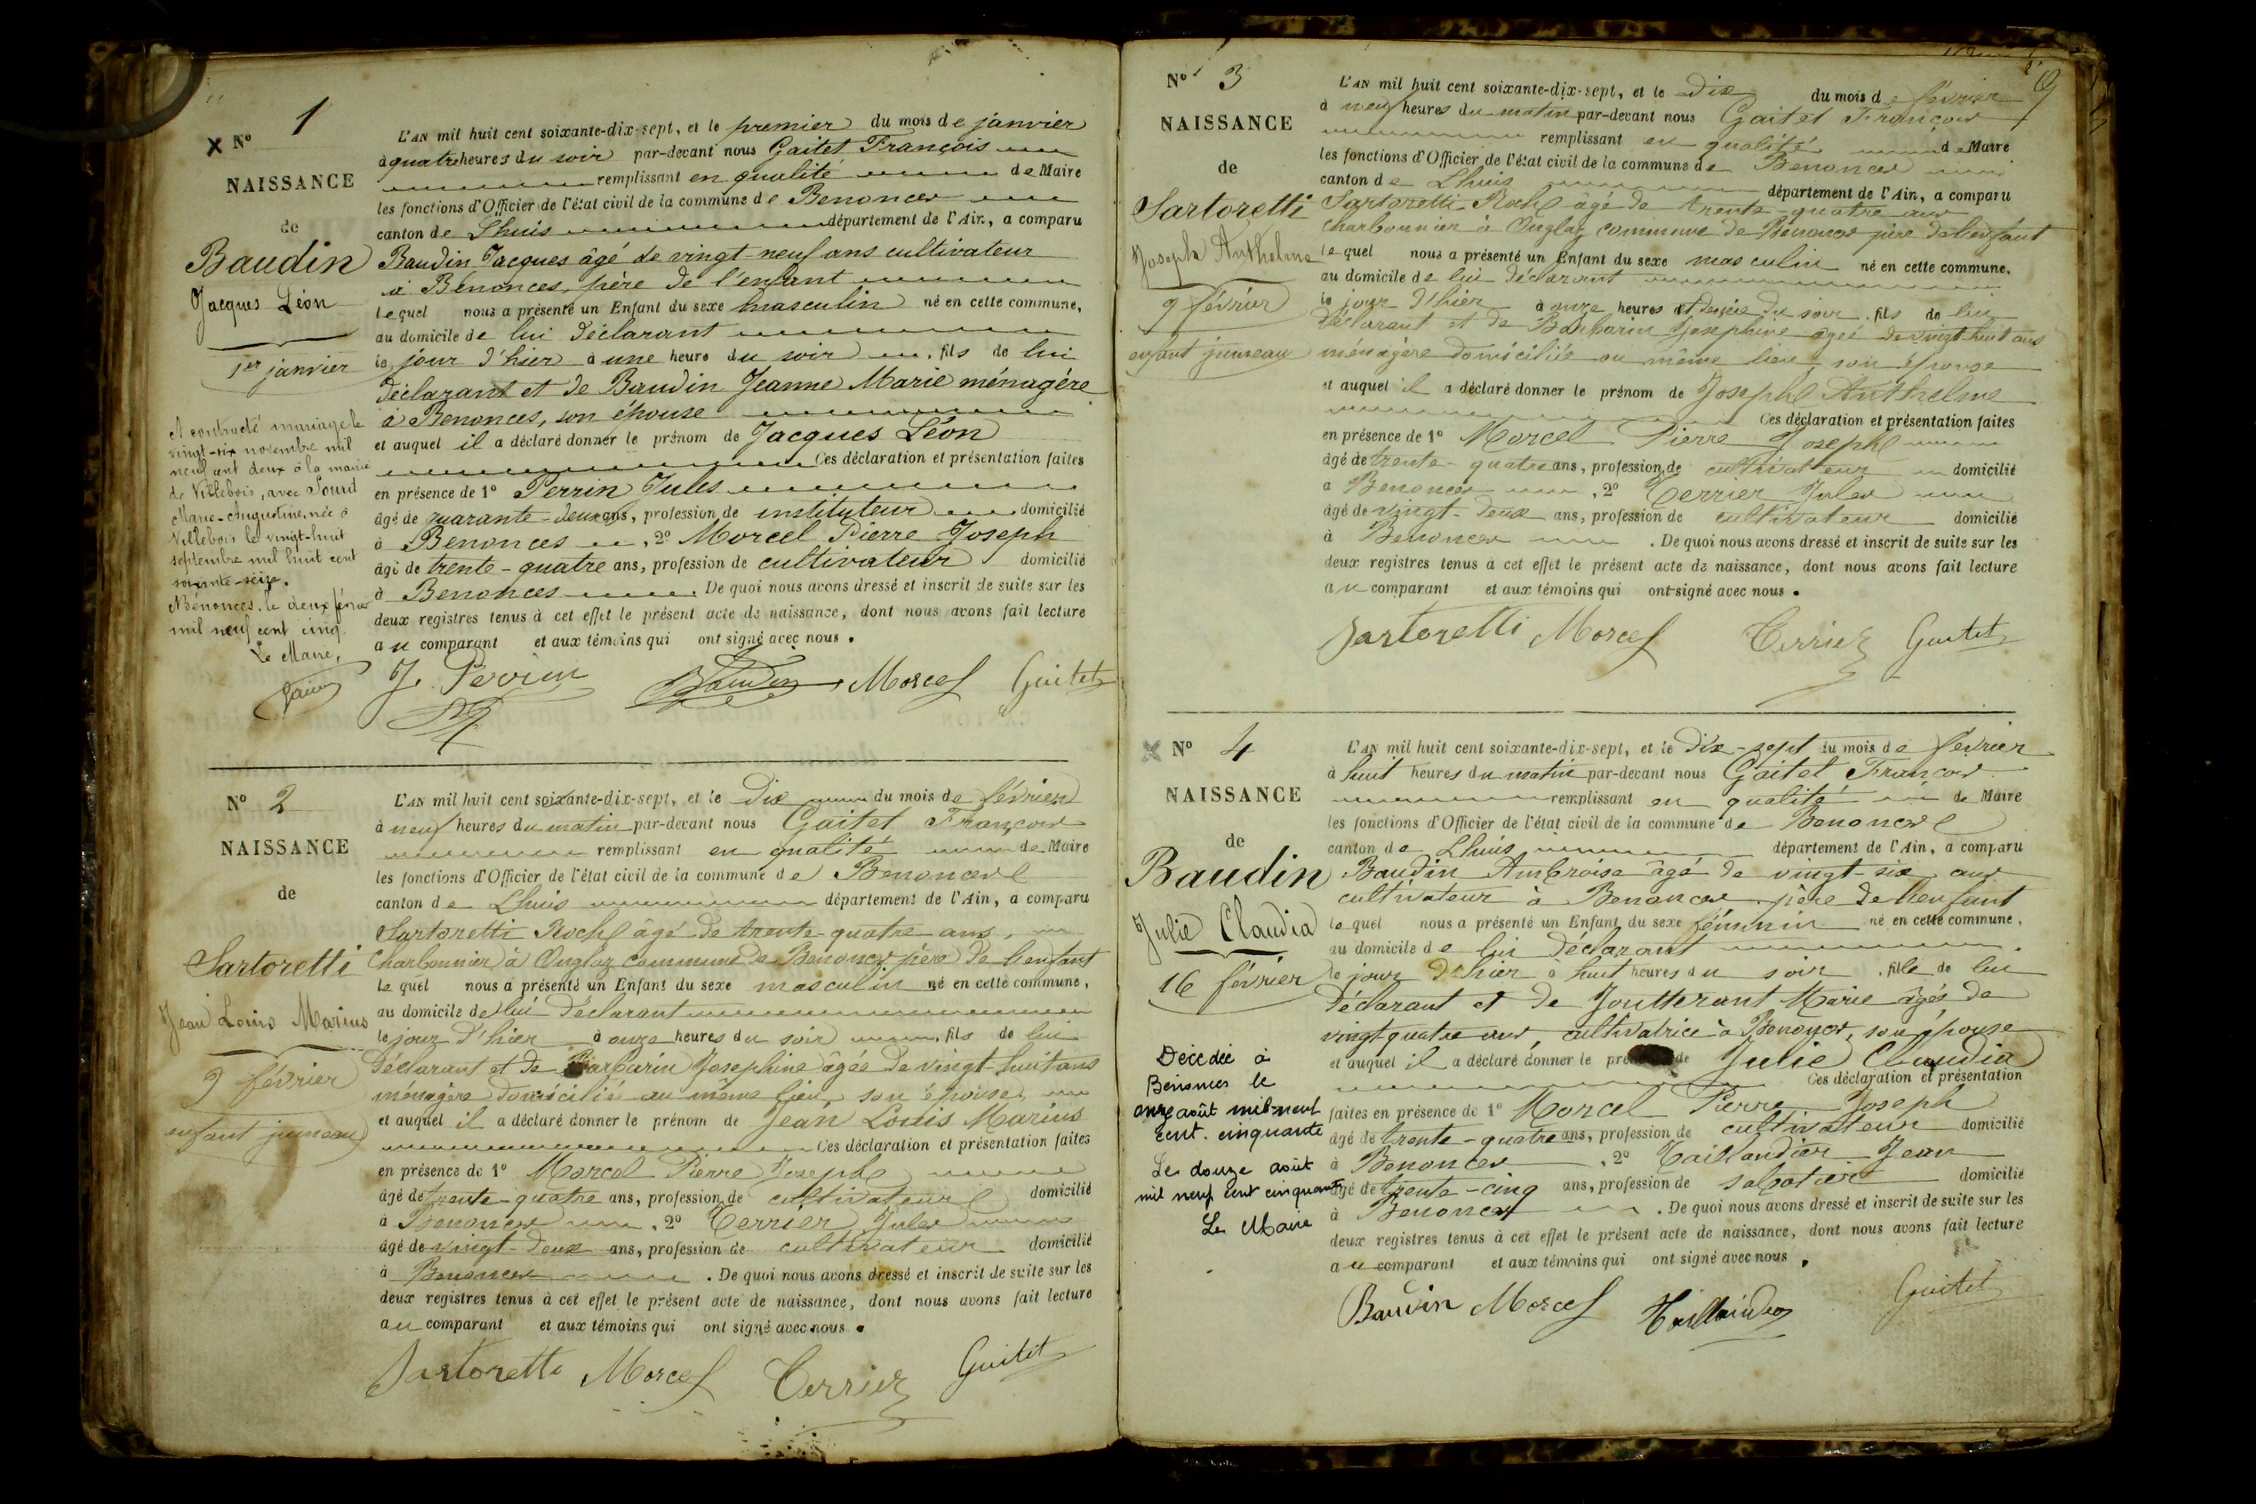 × N° 1
NAISSANCE
de
Baudin
Jacques Léon
1er janvier
A contracté mariage le
vingt-six novembre mil
neuf cent deux à la mairie
de Villebois, avec Sourd
Marie-Augustine, née à
Villebois le vingt-huit
septembre mil huit cent
soixante-seize.
Bénonces, le deux
mil neuf cent cinq.
Le Maire,
L'AN mil huit cent soixante-dix-sept, et le premier du mois de janvier
à quatre heures du soir par-devant nous Gaitet François
remplissant en qualité de Maire
les fonctions d'Officier de l'état civil de la commune de Benonces
canton de Lhuis département de l'Ain, a comparu
Baudin Jacques âgé de vingt-neuf ans cultivateur
à Bénonces, père de l'enfant
lequel nous a présenté un Enfant du sexe masculin né en cette commune,
au domicile de lui déclarant
le jour d'hier à une heure du soir fils de lui
déclarant et de Baudin Jeanne Marie ménagère
à Benonces, son épouse
et auquel il a déclaré donner le prénom de Jacques Léon
Ces déclaration et présentation faites
en présence de 1° Perrin Jules
âgé de quarante-deux ans, profession de instituteur domicilié
à Benonces , 2° Morcel Pierre Joseph
âgé de trente-quatre ans, profession de cultivateur domicilié
à Benonces De quoi nous avons dressé et inscrit de suite sur les
deux registres tenus à cet effet le présent acte de naissance, dont nous avons fait lecture
au comparant et aux témoins qui ont signé avec nous.
J. Perrin Baudin Morcel Gaitet
N° 2
NAISSANCE
de
Sartoretti
Jean Louis Marius
9 février
enfant jumeau
L'AN mil huit cent soixante-dix-sept, et le dix du mois de février
à neuf heures du matin par-devant nous Gaitet François
remplissant en qualité de Maire
les fonctions d'Officier de l'état civil de la commune de Benonces
canton de Lhuis département de l'Ain, a comparu
Sartoretti Roch âgé de trente-quatre ans,
charbonnier à Onglaz commune de Benonces père de l'enfant
lequel nous a présenté un Enfant du sexe masculin né en cette commune,
au domicile de lui déclarant
le jour d'hier à onze heures du soir fils de lui
déclarant et de Barbarin Josephine âgée de vingt-huit ans
ménagère domiciliée au même lieu, son épouse
et auquel il a déclaré donner le prénom de Jean Louis Marius
Ces déclaration et présentation faites
en présence de 1° Morcel Pierre Joseph
âgé de trente-quatre ans, profession de cultivateur domicilié
à Benonces , 2° Terrier Jules
âgé de vingt-deux ans, profession de cultivateur domicilié
à Benonces . De quoi nous avons dressé et inscrit de suite sur les
deux registres tenus à cet effet le présent acte de naissance, dont nous avons fait lecture
au comparant et aux témoins qui ont signé avec nous.
Sartoretti Morcel Terrier Gaitet
N° 3
NAISSANCE
de
Sartoretti
Joseph Anthelme
9 février
enfant jumeau
L'AN mil huit cent soixante-dix-sept, et le dix du mois de février
à neuf heures du matin par-devant nous Gaitet François
remplissant en qualité de Maire
les fonctions d'Officier de l'état civil de la commune de Benonces
canton de Lhuis département de l'Ain, a comparu
Sartoretti Roch âgé de trente-quatre ans
charbonnier à Onglaz commune de Benonces père de l'enfant
lequel nous a présenté un Enfant du sexe masculin né en cette commune,
au domicile de lui déclarant
le jour d'hier à onze heures et demie du soir. fils de lui
déclarant et de Barbarin Josephine âgée de vingt-huit ans
ménagère domiciliée au même lieu, son épouse
et auquel il a déclaré donner le prénom de Joseph Anthelme
Ces déclaration et présentation faites
en présence de 1° Morcel Pierre Joseph
âgé de trente-quatre ans, profession de cultivateur domicilié
à Benonces , 2° Terrier Jules
âgé de vingt-deux ans, profession de cultivateur domicilié
à Benonces . De quoi nous avons dressé et inscrit de suite sur les
deux registres tenus à cet effet le présent acte de naissance, dont nous avons fait lecture
au comparant et aux témoins qui ont signé avec nous.
Sartoretti Morcel Terrier Gaitet
× N° 4
NAISSANCE
de
Baudin
Julie Claudia
16 février
Décédée à
Benonces le
onze août mil neuf
cent cinquante
Le douze août
mil neuf cent cinquante
Le Maire
L'AN mil huit cent soixante-dix-sept, et le dix-sept du mois de février
à huit heures du matin par-devant nous Gaitet François
remplissant en qualité de Maire
les fonctions d'Officier de l'état civil de la commune de Benonces
canton de Lhuis département de l'Ain, a comparu
Baudin Ambroise âgé de vingt-six ans
cultivateur à Benonces, père de l'enfant
lequel nous a présenté un Enfant du sexe féminin né en cette commune,
au domicile de lui déclarant
le jour d'hier à huit heures du soir . fille de lui
déclarant et de Joutterant Marie âgée de
vingt quatre ans, cultivatrice à Benonces, son épouse
et auquel il a déclaré donner le de Julie Claudia
Ces déclaration et présentation
faites en présence de 1° Morcel Pierre Joseph
âgé de trente-quatre ans, profession de cultivateur domicilié
à Benonces , 2° Taillandier Jean
âgé de trente-cinq ans, profession de sabotier domicilié
à Benonces . De quoi nous avons dressé et inscrit de suite sur les
deux registres tenus à cet effet le présent acte de naissance, dont nous avons fait lecture
au comparant et aux témoins qui ont signé avec nous.
Baudin Morcel Taillandier Gaitet